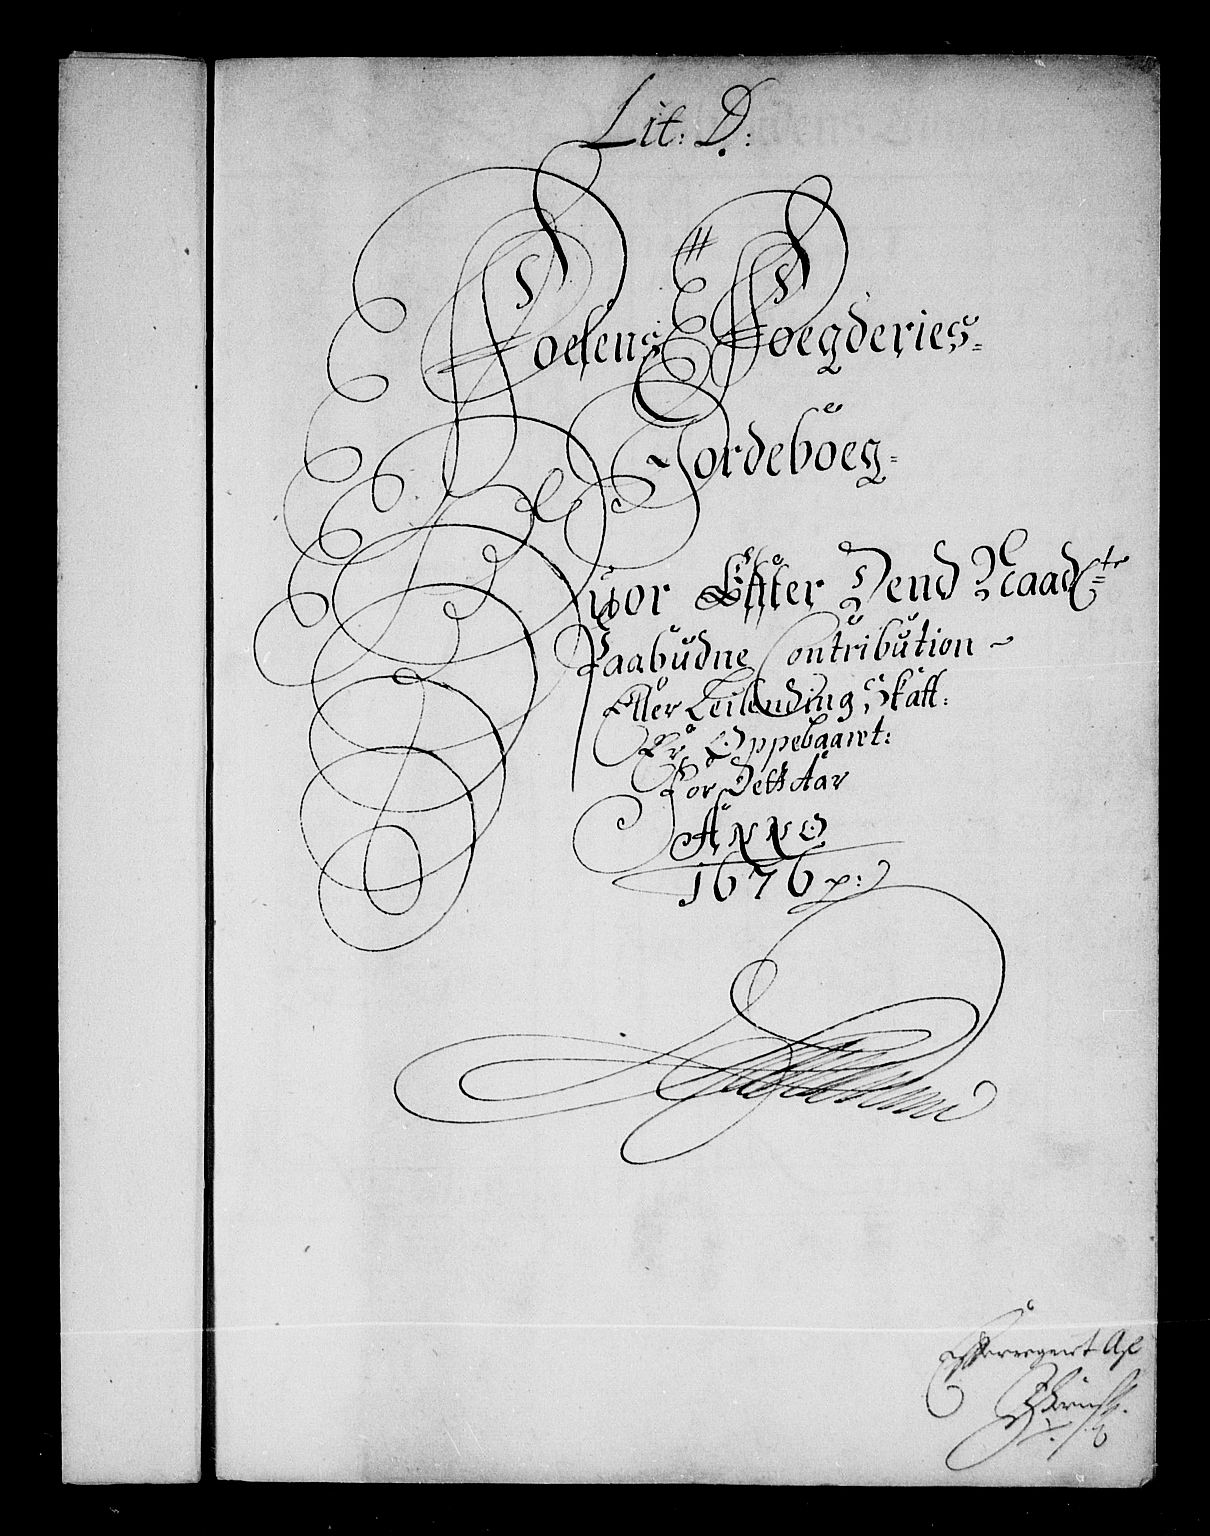 Lit: D:
Foesens Foegderies=
Jordeboeg=
Hvor Effter Dend Naadgte
Paabudne Contribution
Eller Leilending Skatt:
Er Oppebaaret:
For Dett Aar
ANNO
1676 p:
Efferregnet Af